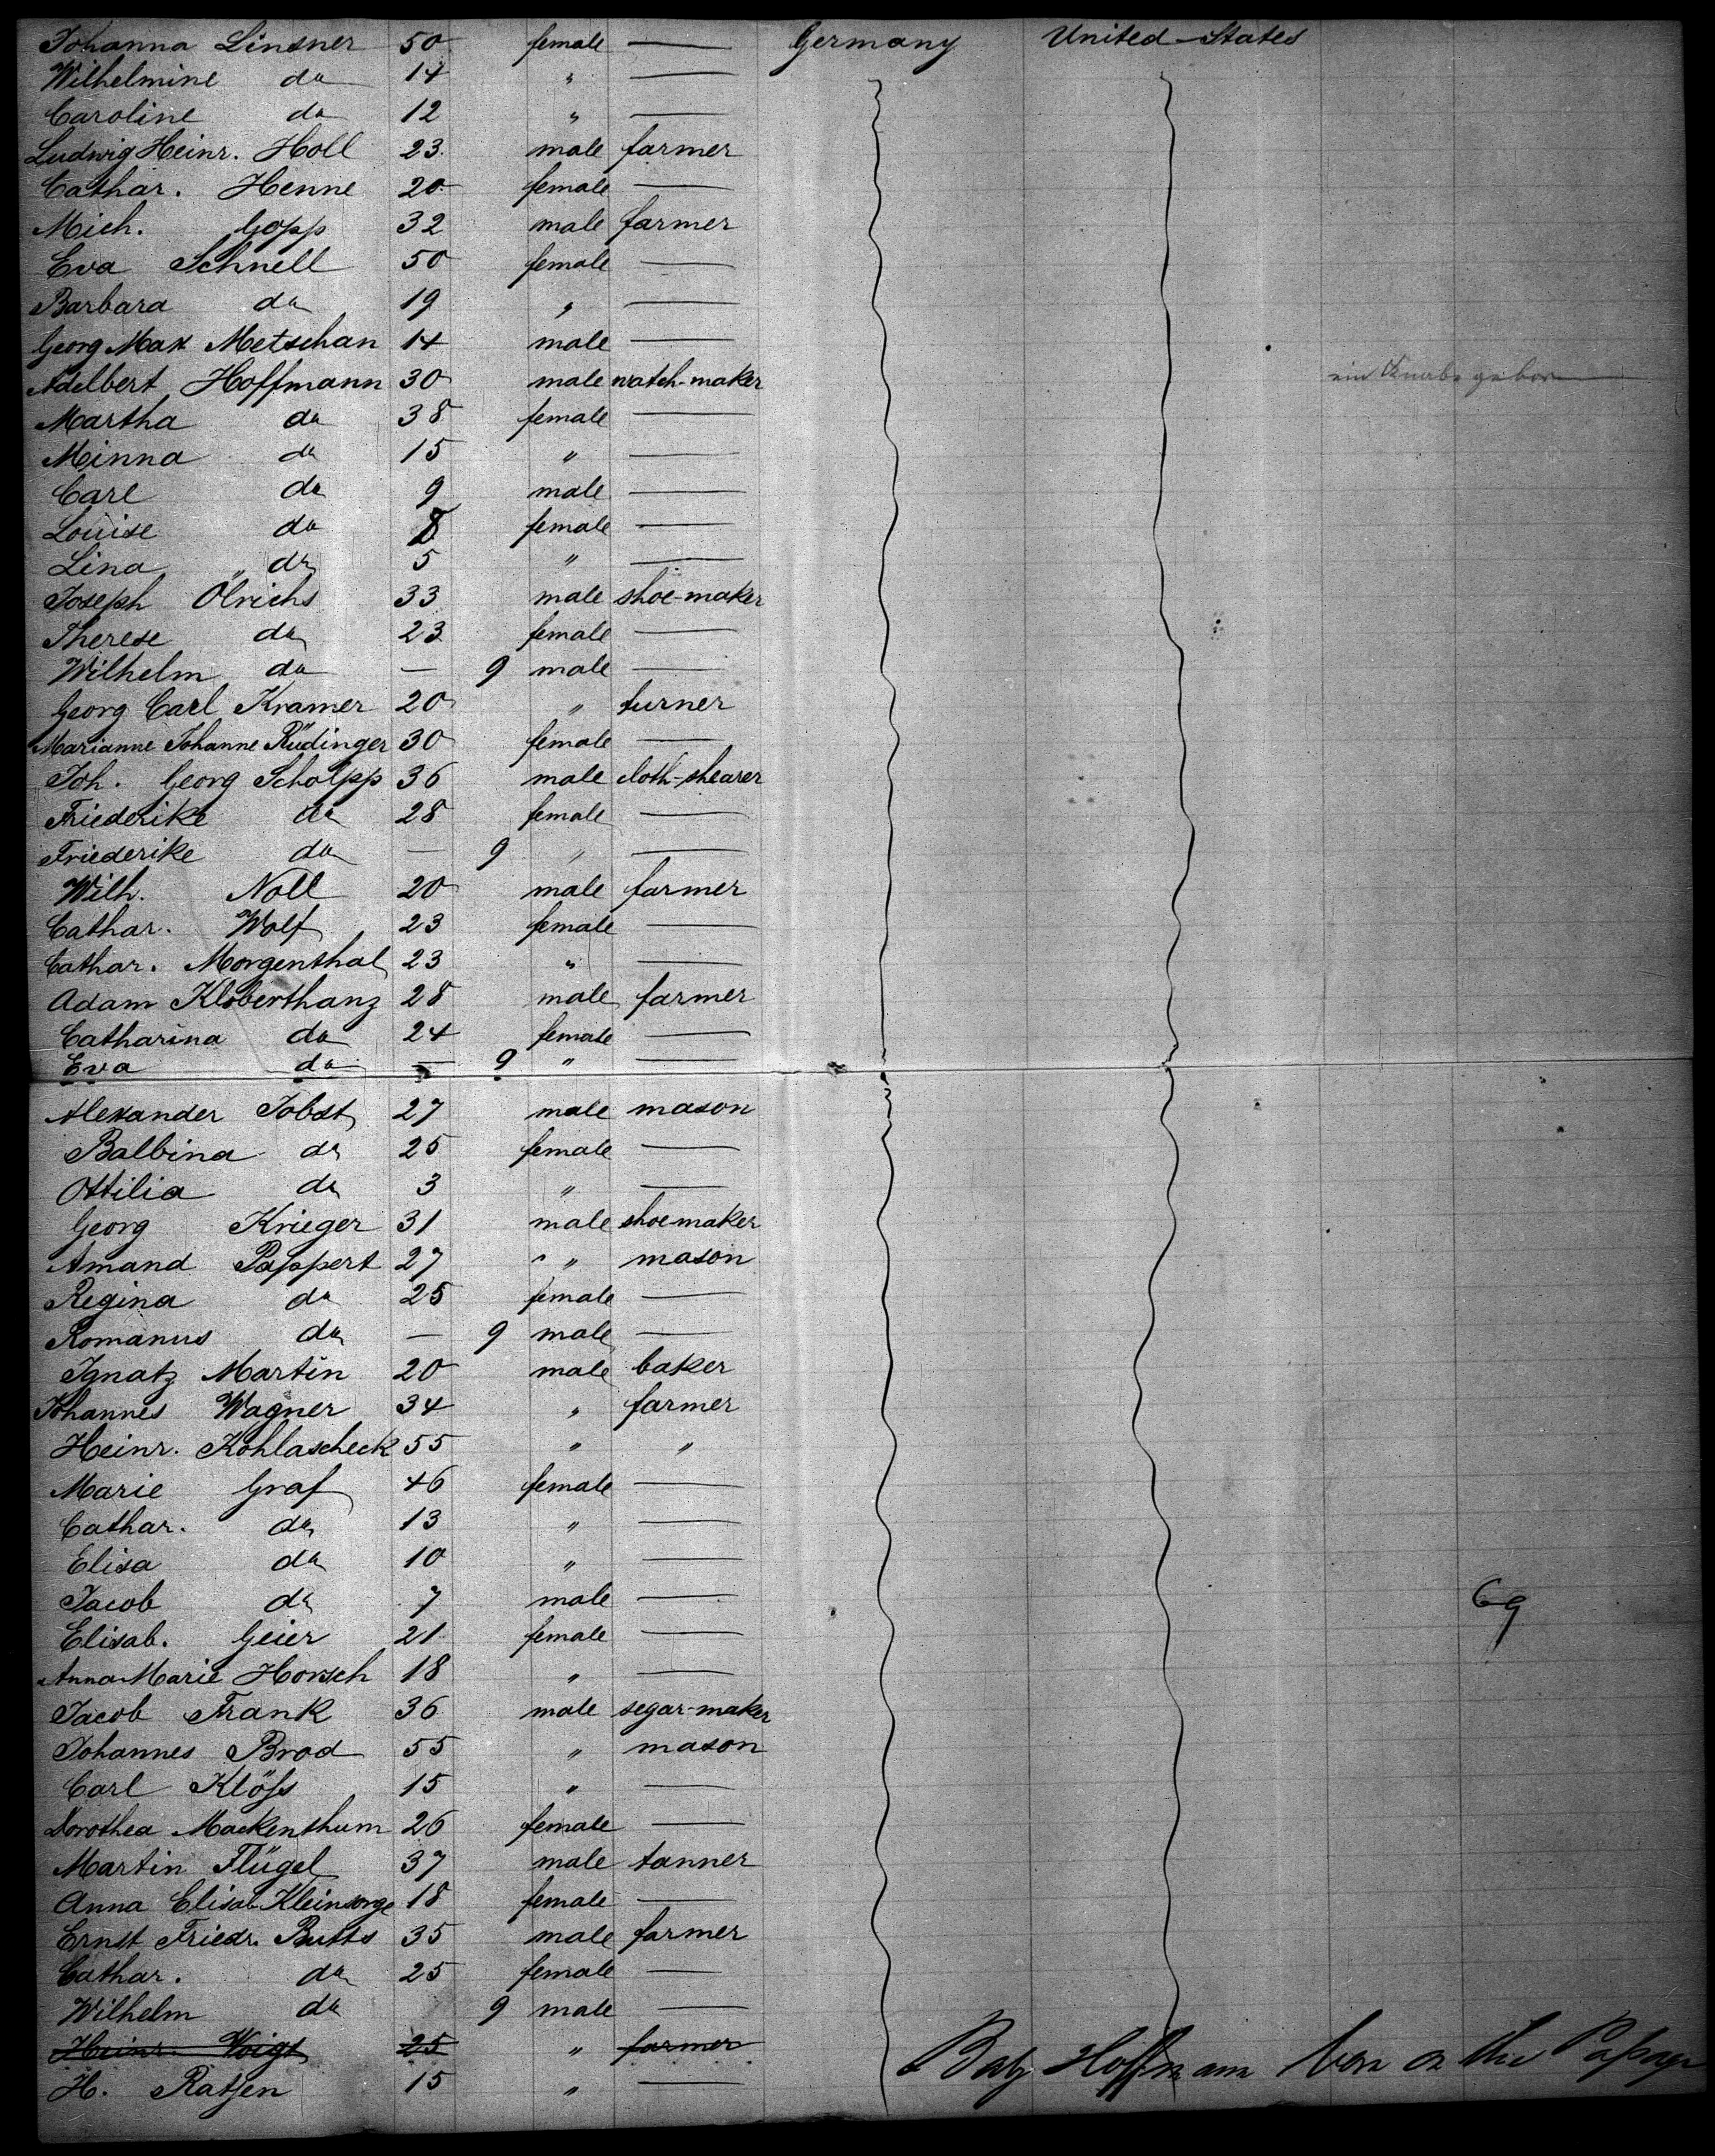 Johanna Linsner 50 female — Germany United States
Wilhelmine do 14 " —
Caroline do 12 " —
Ludwig Heinr. Holl 23 male farmer
Cathar. Henne 20 female —
Mich. Gopp 32 male farmer
Eva Schnell 50 female —
Barbara do 19 " —
Georg Max Metschan 14 male —
Adelbert Hoffmann 30 male watch-maker ein Knabe geboren
Martha do 38 female —
Minna do 15 " —
Carl do 9 male —
Louise do 8 female —
Lina do 5 " —
Joseph Ölrichs 33 male shoe-maker
Therese do 23 female —
Wilhelm do — 9 male —
Georg Carl Kramer 20 " turner
Marianne Johanne Rüdinger 30 female —
Joh. Georg Scholpp 36 male cloth-shearer
Friederike do 28 female —
Friederike do — 9 " —
Wilh. Noll 20 male farmer
Cathar. Wolf 23 female —
Cathar. Morgenthal 23 " —
Adam Kloberthanz 28 male farmer
Catharina do 24 female —
Eva do — 9 " —
Alexander Jobst 27 male mason
Balbina do 25 female —
Ottilia do 3 " —
Georg Krieger 31 male shoemaker
Amand Pappert 27 " mason
Regina do 25 female —
Romanus do — 9 male —
Ignatz Martin 20 male baker
Johannes Wagner 34 " farmer
Heinr. Kohlascheck 55 " "
Marie Graf 46 female —
Cathar. do 13 " —
Elisa do 10 " —
Jacob do 7 male —
Elisab. Geier 21 female —
Anna Marie Horsch 18 " —
Jacob Frank 36 male segar-maker
Johannes Brod 55 " mason
Carl Klöſs 15 " —
Dorothea Mackenthum 26 female —
Martin Flügel 37 male tanner
Anna Elisab. Kleinsorge 18 female —
Ernst Friedr. Butts 35 male farmer
Cathar. do 25 female —
Wilhelm do 9 male —
Heinr. Voigt 25 " farmer
Baby Hoffmann born on the Paſsage
H. Ratjen 15 " —